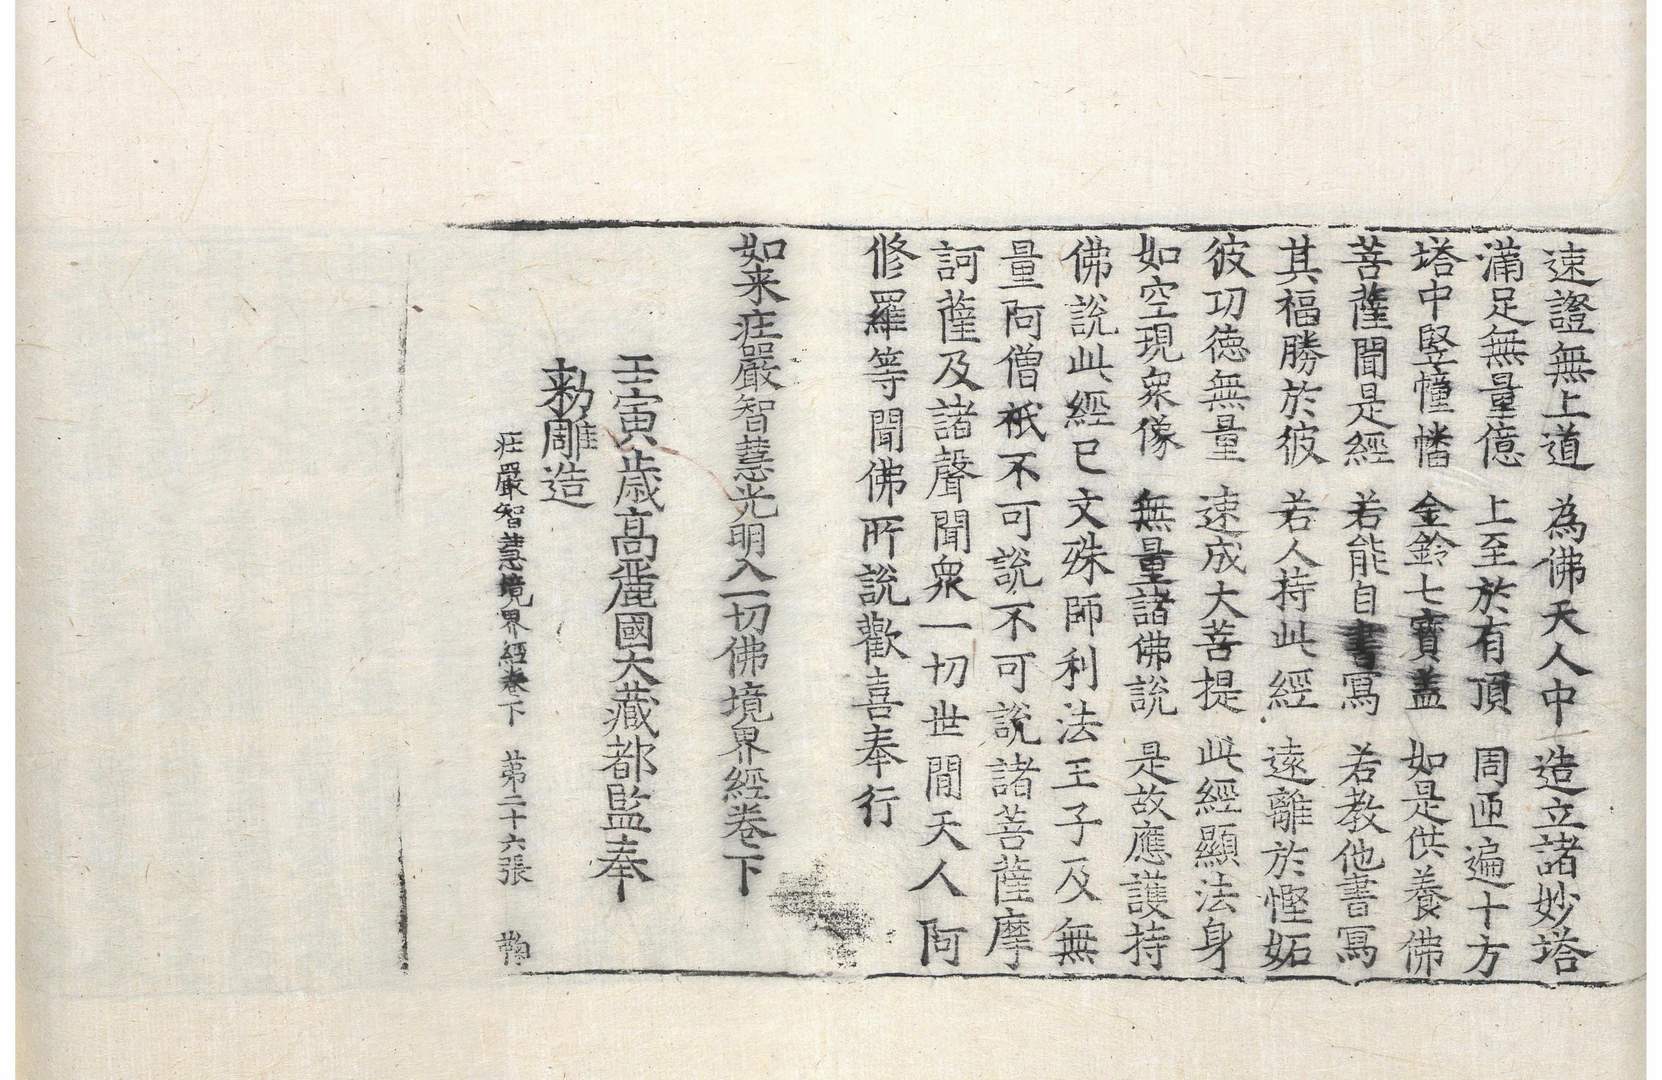 速證無上道　為佛天人中　造立諸妙塔
滿足無量億　上至於有頂　周匝遍十方
塔中竪幢幡　金鈴七寶盖　如是供養佛
菩薩聞是經　若能自書寫　若教他書寫
其福勝於彼　若人持此經　遠離於慳妬
彼功徳無量　速成大菩提　此經顯法身
如空現衆像　無量諸佛說　是故應護持
佛說此經已文殊師利法王子及無
量阿僧祇不可說不可說諸菩薩摩
訶薩及諸聲聞衆一切世閒天人阿
修羅等聞佛所說歡喜奉行
如来庄嚴智慧光明入一切佛境界經卷下
壬寅歳高麗國大藏都監奉
勑雕造
庄嚴智慧境界經卷下　第二十六張　鞠